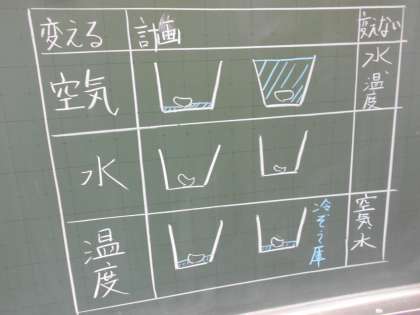 変える 計画 変えない
空気 水、温度
水
温度 冷ぞう庫 空気水